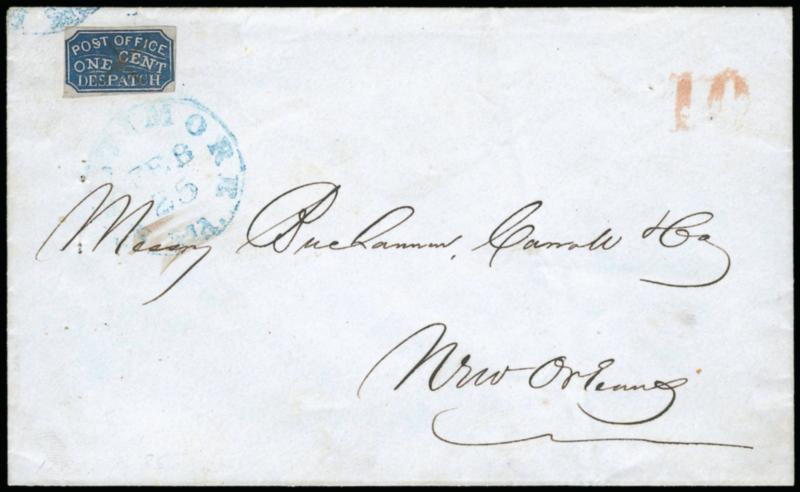 POST OFFICE
ONE CENT
DESPATCH
10
FEB
25
Messrs Buchannan, Carroll & Co
New Orleans